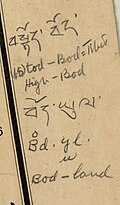 བོད་
tod-Bod-Tibet
High-Bod
བོད་ཡུལ་
Bd. yl.
u
Bod-land